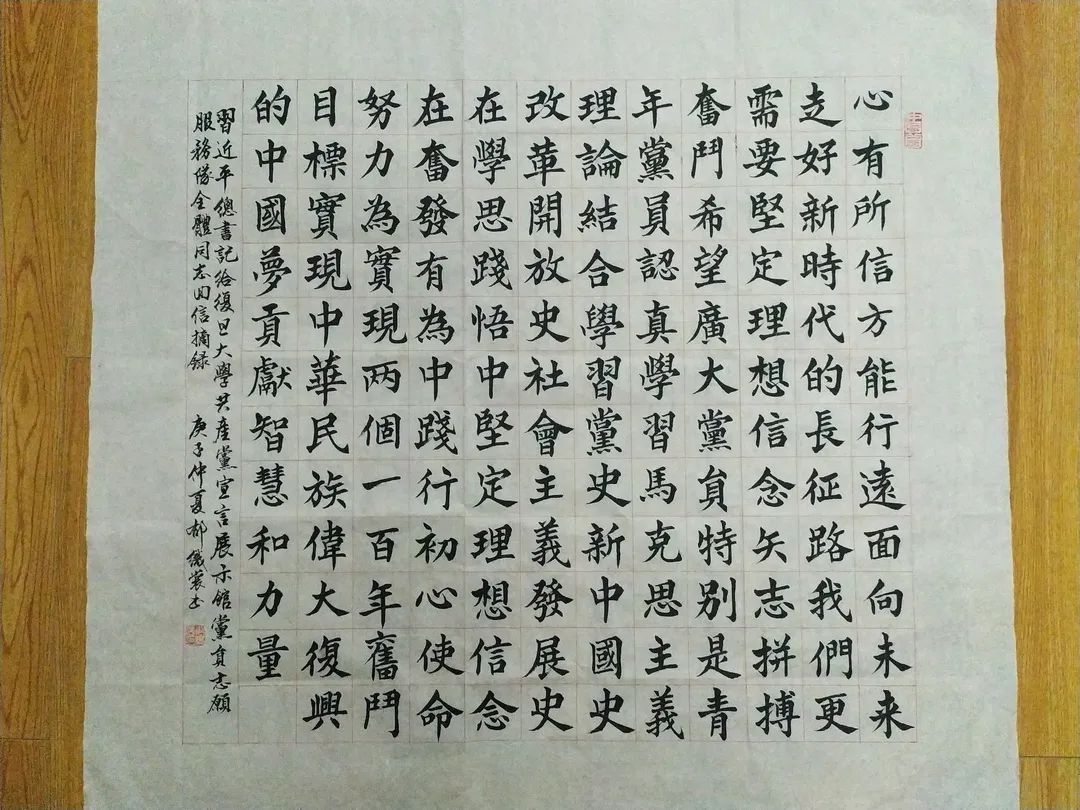 心有所信方能行遠面向未来
走好新時代的長征路我們更
需要堅定理想信念矢志拼搏
奮鬥希望廣大黨員特別是青
年黨員認真學習馬克思主義
理論結合學習黨史新中國史
改革開放史社會主義發展史
在學思踐悟中堅定理想信念
在奮發有為中踐行初心使命
努力為實現两個一百年奮鬥
目標實現中華民族偉大復興
的中國夢貢獻智慧和力量
習近平總書記给復旦大學共產黨宣言展示館黨員志願
服務隊全體同志回信摘録 庚子仲夏郝